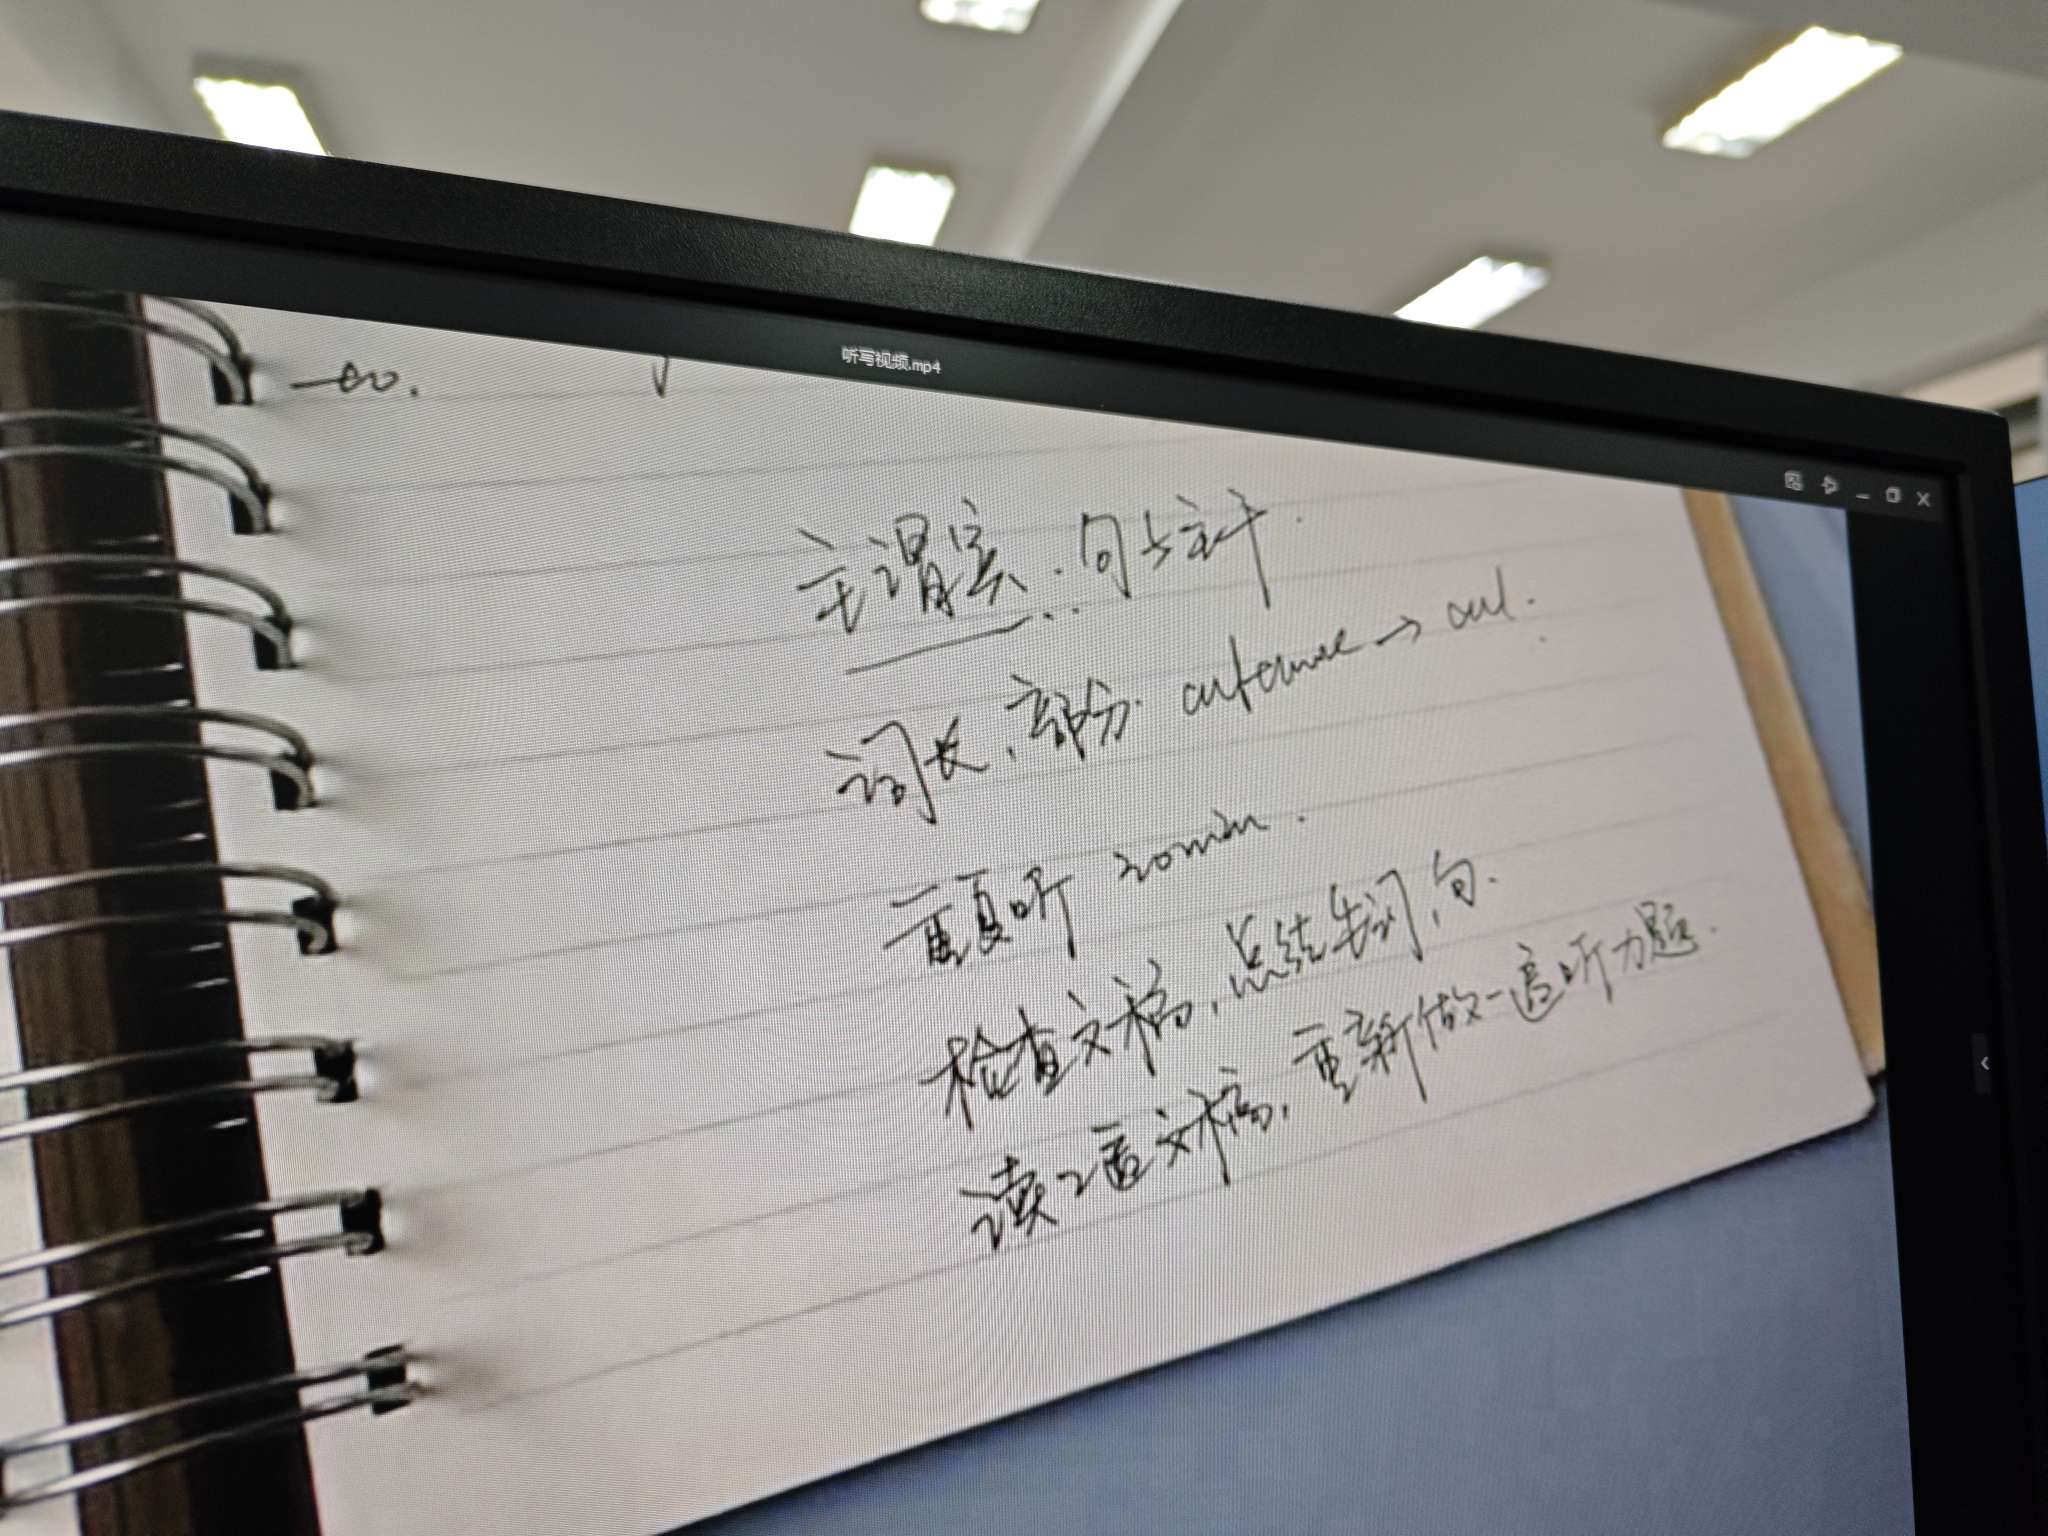 听写视频.mp4
主谓宾. 句子主干.
词长, 部分. →
重复听 20min.
检查文稿, 总结生词, 句.
读2遍文稿, 重新做一遍听力题.